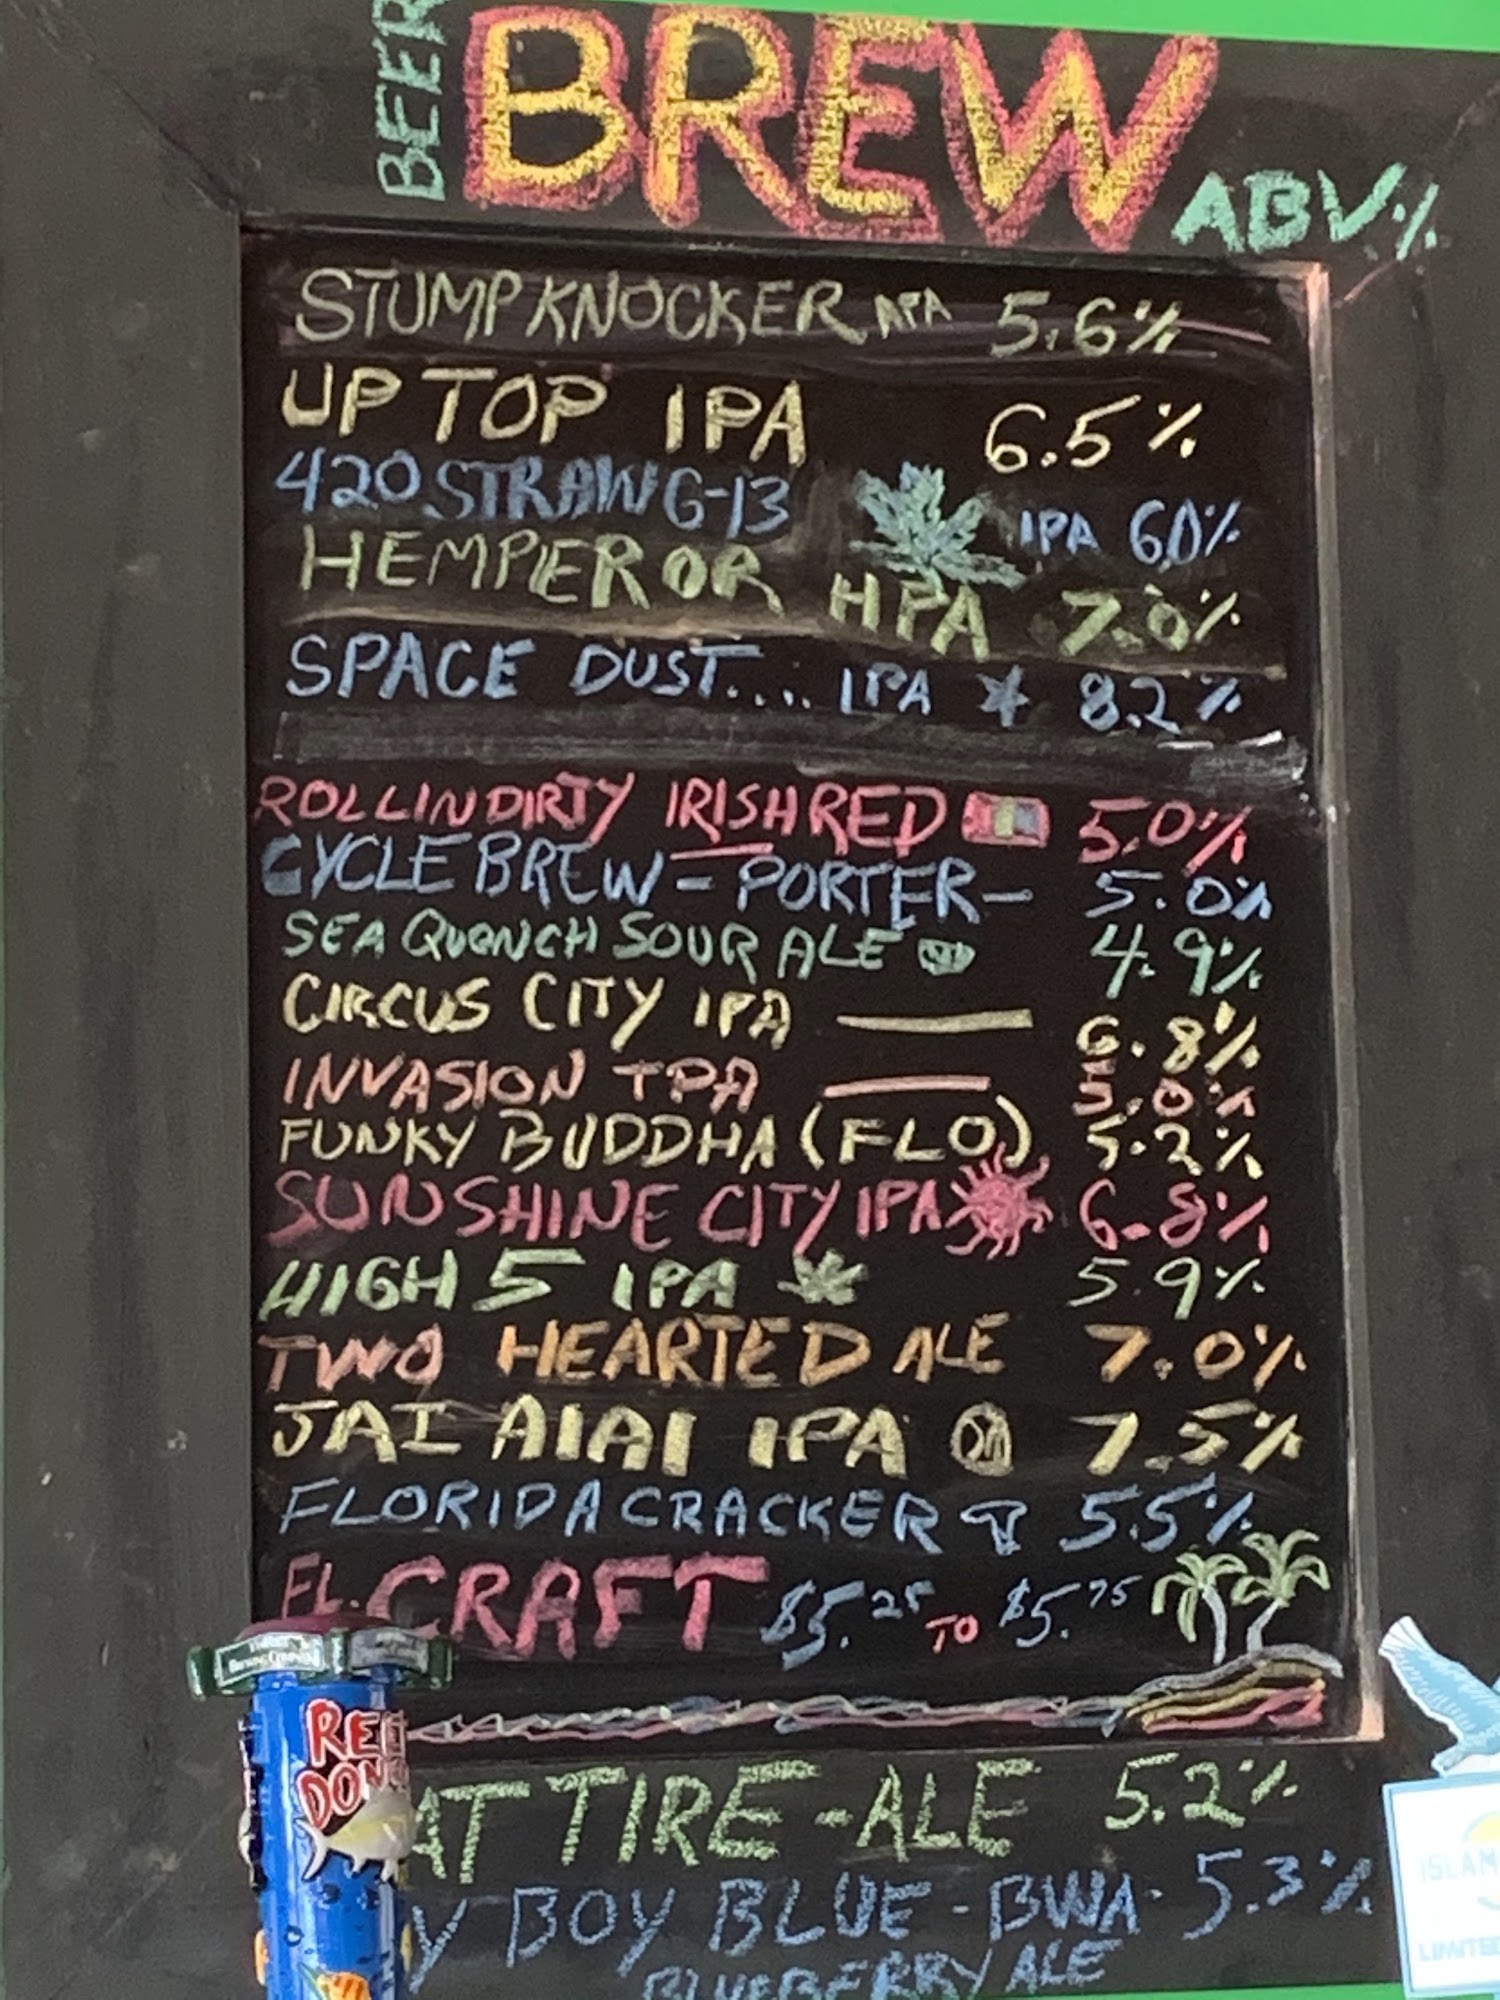 BEER BREW ABV%
STUMPKNOCKER APA 5.6%
UP TOP IPA 6.5%
420 STRAWN G-13 IPA 6.0%
HEMPEROR HPA 7.0%
SPACE DUST.... IPA * 8.2%
ROLLIN DIRTY IRISH RED 5.0%
CYCLE BREW - PORTER - 5.0%
SEA QUENCH SOUR ALE 4.9%
CIRCUS CITY IPA 6.8%
INVASION TPA 5.0%
FUNKY BUDDHA (FLO) 5.2%
SUNSHINE CITY IPA 6.8%
HIGH 5 IPA 5.9%
TWO HEARTED ALE 7.0%
JAI AIAI IPA 7.5%
FLORIDA CRACKER 5.5%
FL. CRAFT $5.25 TO $5.75
AT TIRE - ALE 5.2%
Y BOY BLUE - BWA - 5.3%
BLUEBERRY ALE
BREWING COMPANY
REEF
DON
ISLAM
LIMITE